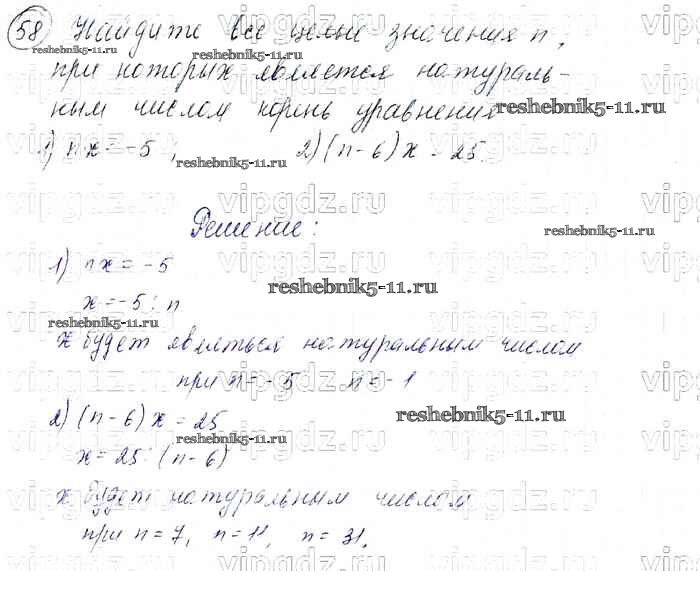 58 Найдите все целые значения n,
при которых является натураль-
ным числом корень уравнения
1) nx = -5; 2) (n-6)x = 25.
Решение:
1) nx = -5
x = -5 : n
x будет являться натуральным числом
при n = -5 n = -1
2) (n-6)x = 25
x = 25 : (n-6)
x будет натуральным числом
при n = 7, n = 11, n = 31.
reshebnik5-11.ru
vipgdz.ru